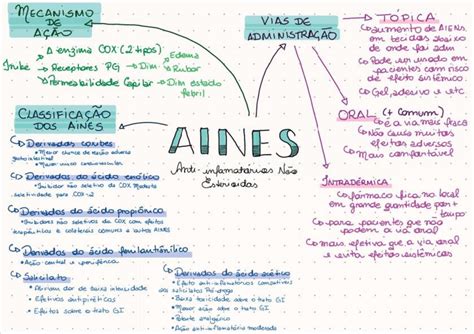 MECANISMO
DE
AÇÃO
Inibe
A enzima COX (2 tipos)
Receptores PG → Dim
Edema
Rubor
Permeabilidade Capilar → Dim estado
febril
CLASSIFICAÇÃO
DOS AINES
Derivados coxibes
Derivados do ácido enólico
Inibidor não seletivo da COX Moderada
seletividade para COX-2
Derivados do ácido propiônico
Inibidores não seletivos da COX com efeitos
terapêuticos e colaterais comuns a outros AINES
Derivados do ácido fenilantranílico
Ação central e periférica
Salicilato:
Atividade dor de baixa intensidade
Efeitos antipiréticos
Efeitos sobre o trato GI
Derivados do ácido acético
Efeito anti-inflamatórios compatíveis
aos salicilatos
Baixa toxicidade sobre o trato GI
Maior ação sobre o trato GI
Potente analgésico
Ação anti-inflamatória moderada
AINES
Anti-inflamatórios Não
Esteroidas
VIAS DE
ADMINISTRAÇÃO
TÓPICA
aumento de AIENS
em tecidos abaixo
de onde foi adm
Pode ser usado em
pacientes com risco
de efeito sistêmico
Gel, adesivo e etc
ORAL (+ Comum)
é a via mais fisca
Não causa muitos
efeitos adversos
Mais comfortável
INTRADÉRMICA
fármaco fica no local
em grande quantidade por +
tempo
para pacientes que não
podem a via oral
Mais efetiva que a via oral
e evita efeitos sistêmicos